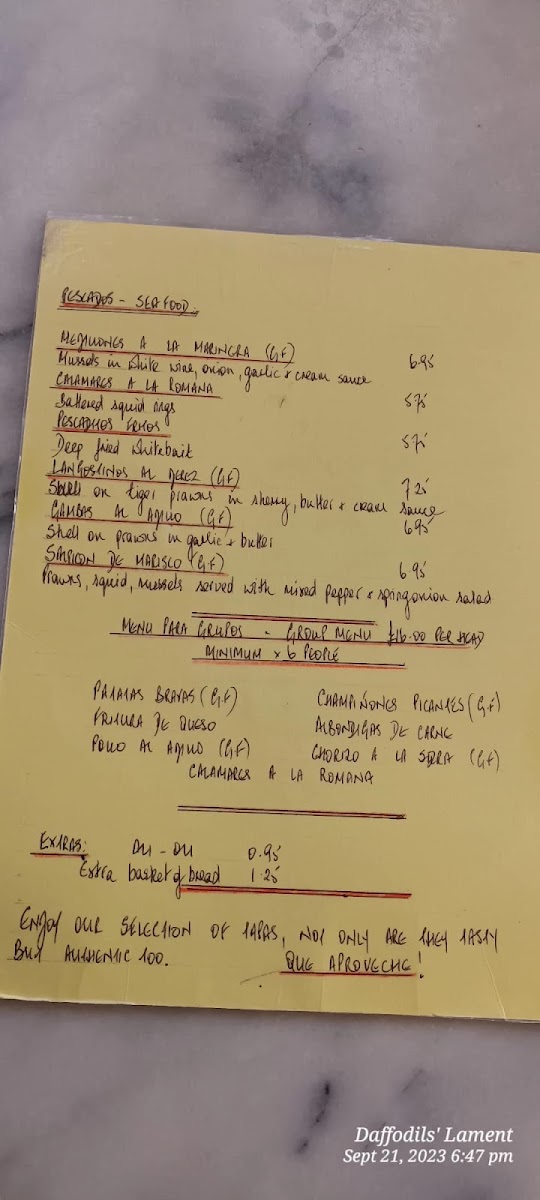 PESCADOS - SEAFOOD.
MEJILLONES A LA MARINERA (GF)
Mussels in white wine, onion, garlic + cream sauce 6.95
CALAMARES A LA ROMANA
Battered squid rings 5.75
PESCADITOS FRITOS
Deep fried whitebait 5.75
LANGOSTINOS AL JEREZ (GF) 7.25
Shell on tiger prawns in sherry, butter + cream sauce
GAMBAS AL AJILLO (GF) 6.95
Shell on prawns in garlic + butter
SALPICON DE MARISCO (GF) 6.95
Prawns, squid, mussels served with mixed pepper + spring onion salad
MENU PARA GRUPOS - GROUP MENU £16.00 PER HEAD
MINIMUM x 6 PEOPLE
PATATAS BRAVAS (GF) CHAMPIÑONES PICANTES (GF)
FRITURA DE QUESO ALBONDIGAS DE CARNE
POLLO AL AJILLO (GF) CHORIZO A LA SIDRA (GF)
CALAMARES A LA ROMANA
EXTRAS: ALI - OLI 0.95
Extra basket of bread 1.25
ENJOY OUR SELECTION OF TAPAS, NOT ONLY ARE THEY TASTY
BUT AUTHENTIC TOO. QUE APROVECHE!
Daffodils' Lament
Sept 21, 2023 6:47 pm